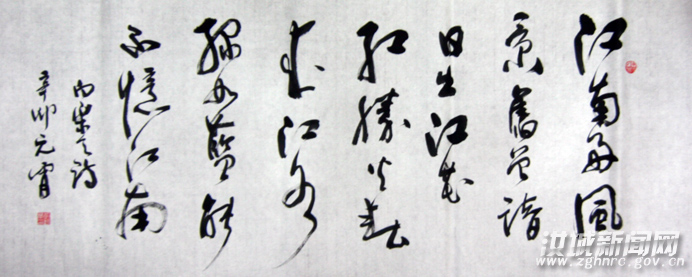 江南好風
景舊曾諳
日出江花
紅勝火春
來江水
綠如藍能
不憶江南
樂天詩
辛卯元宵
新闻网
www.zghnrc.gov.cn